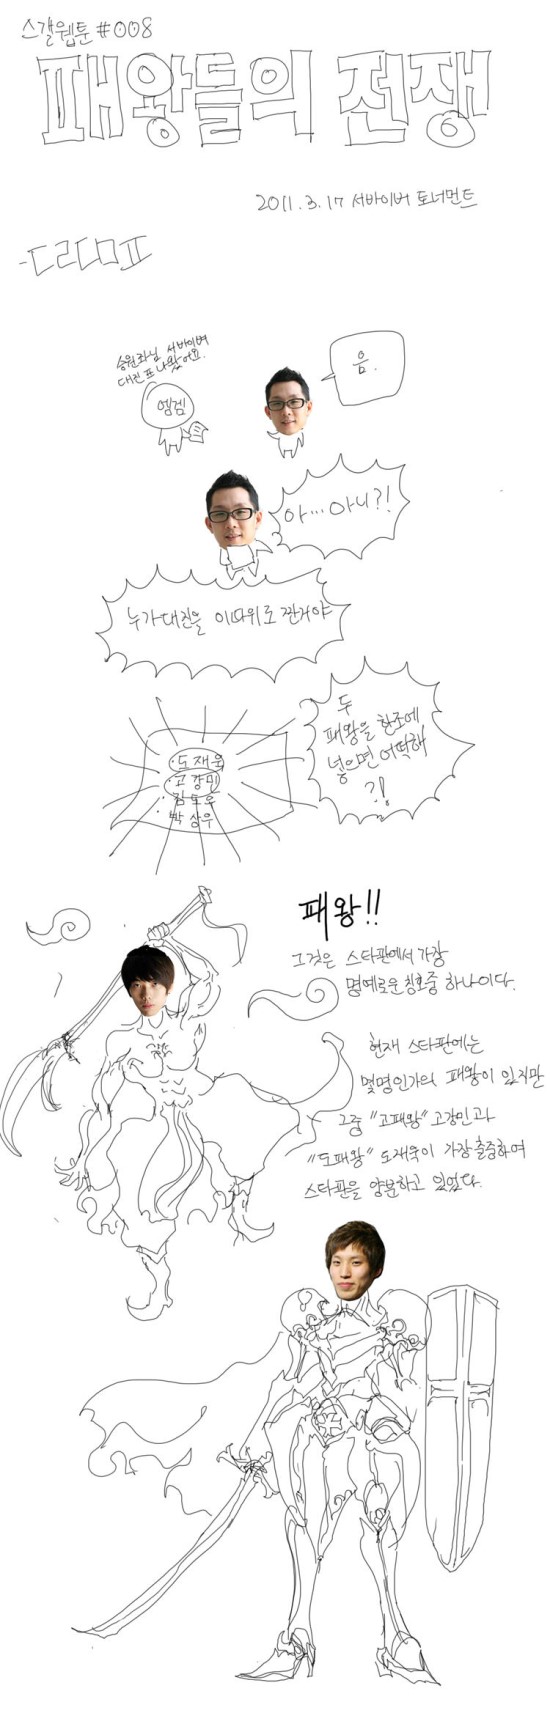 스갤웹툰 #008
패왕들의 전쟁
2011.3.17 서바이버 토너먼트
-ㄷㄹㄷㅁㅍ
승원좌님 서바이버
대진표 나왔어요.
엠겜
음.
아...아니?!
누가 대진을 이따위로 짠거야
두
패왕을 한조에
넣으면 어떡해
?!
·도재욱
·고강민
·김도우
·박상우
패왕!!
그것은 스타판에서 가장
명예로운 칭호중 하나이다.
현재 스타판에는
몇명인가의 패왕이 있지만
그중 "고패왕" 고강민과
"도패왕" 도재욱이 가장 출중하여
스타판을 양분하고 있었다.